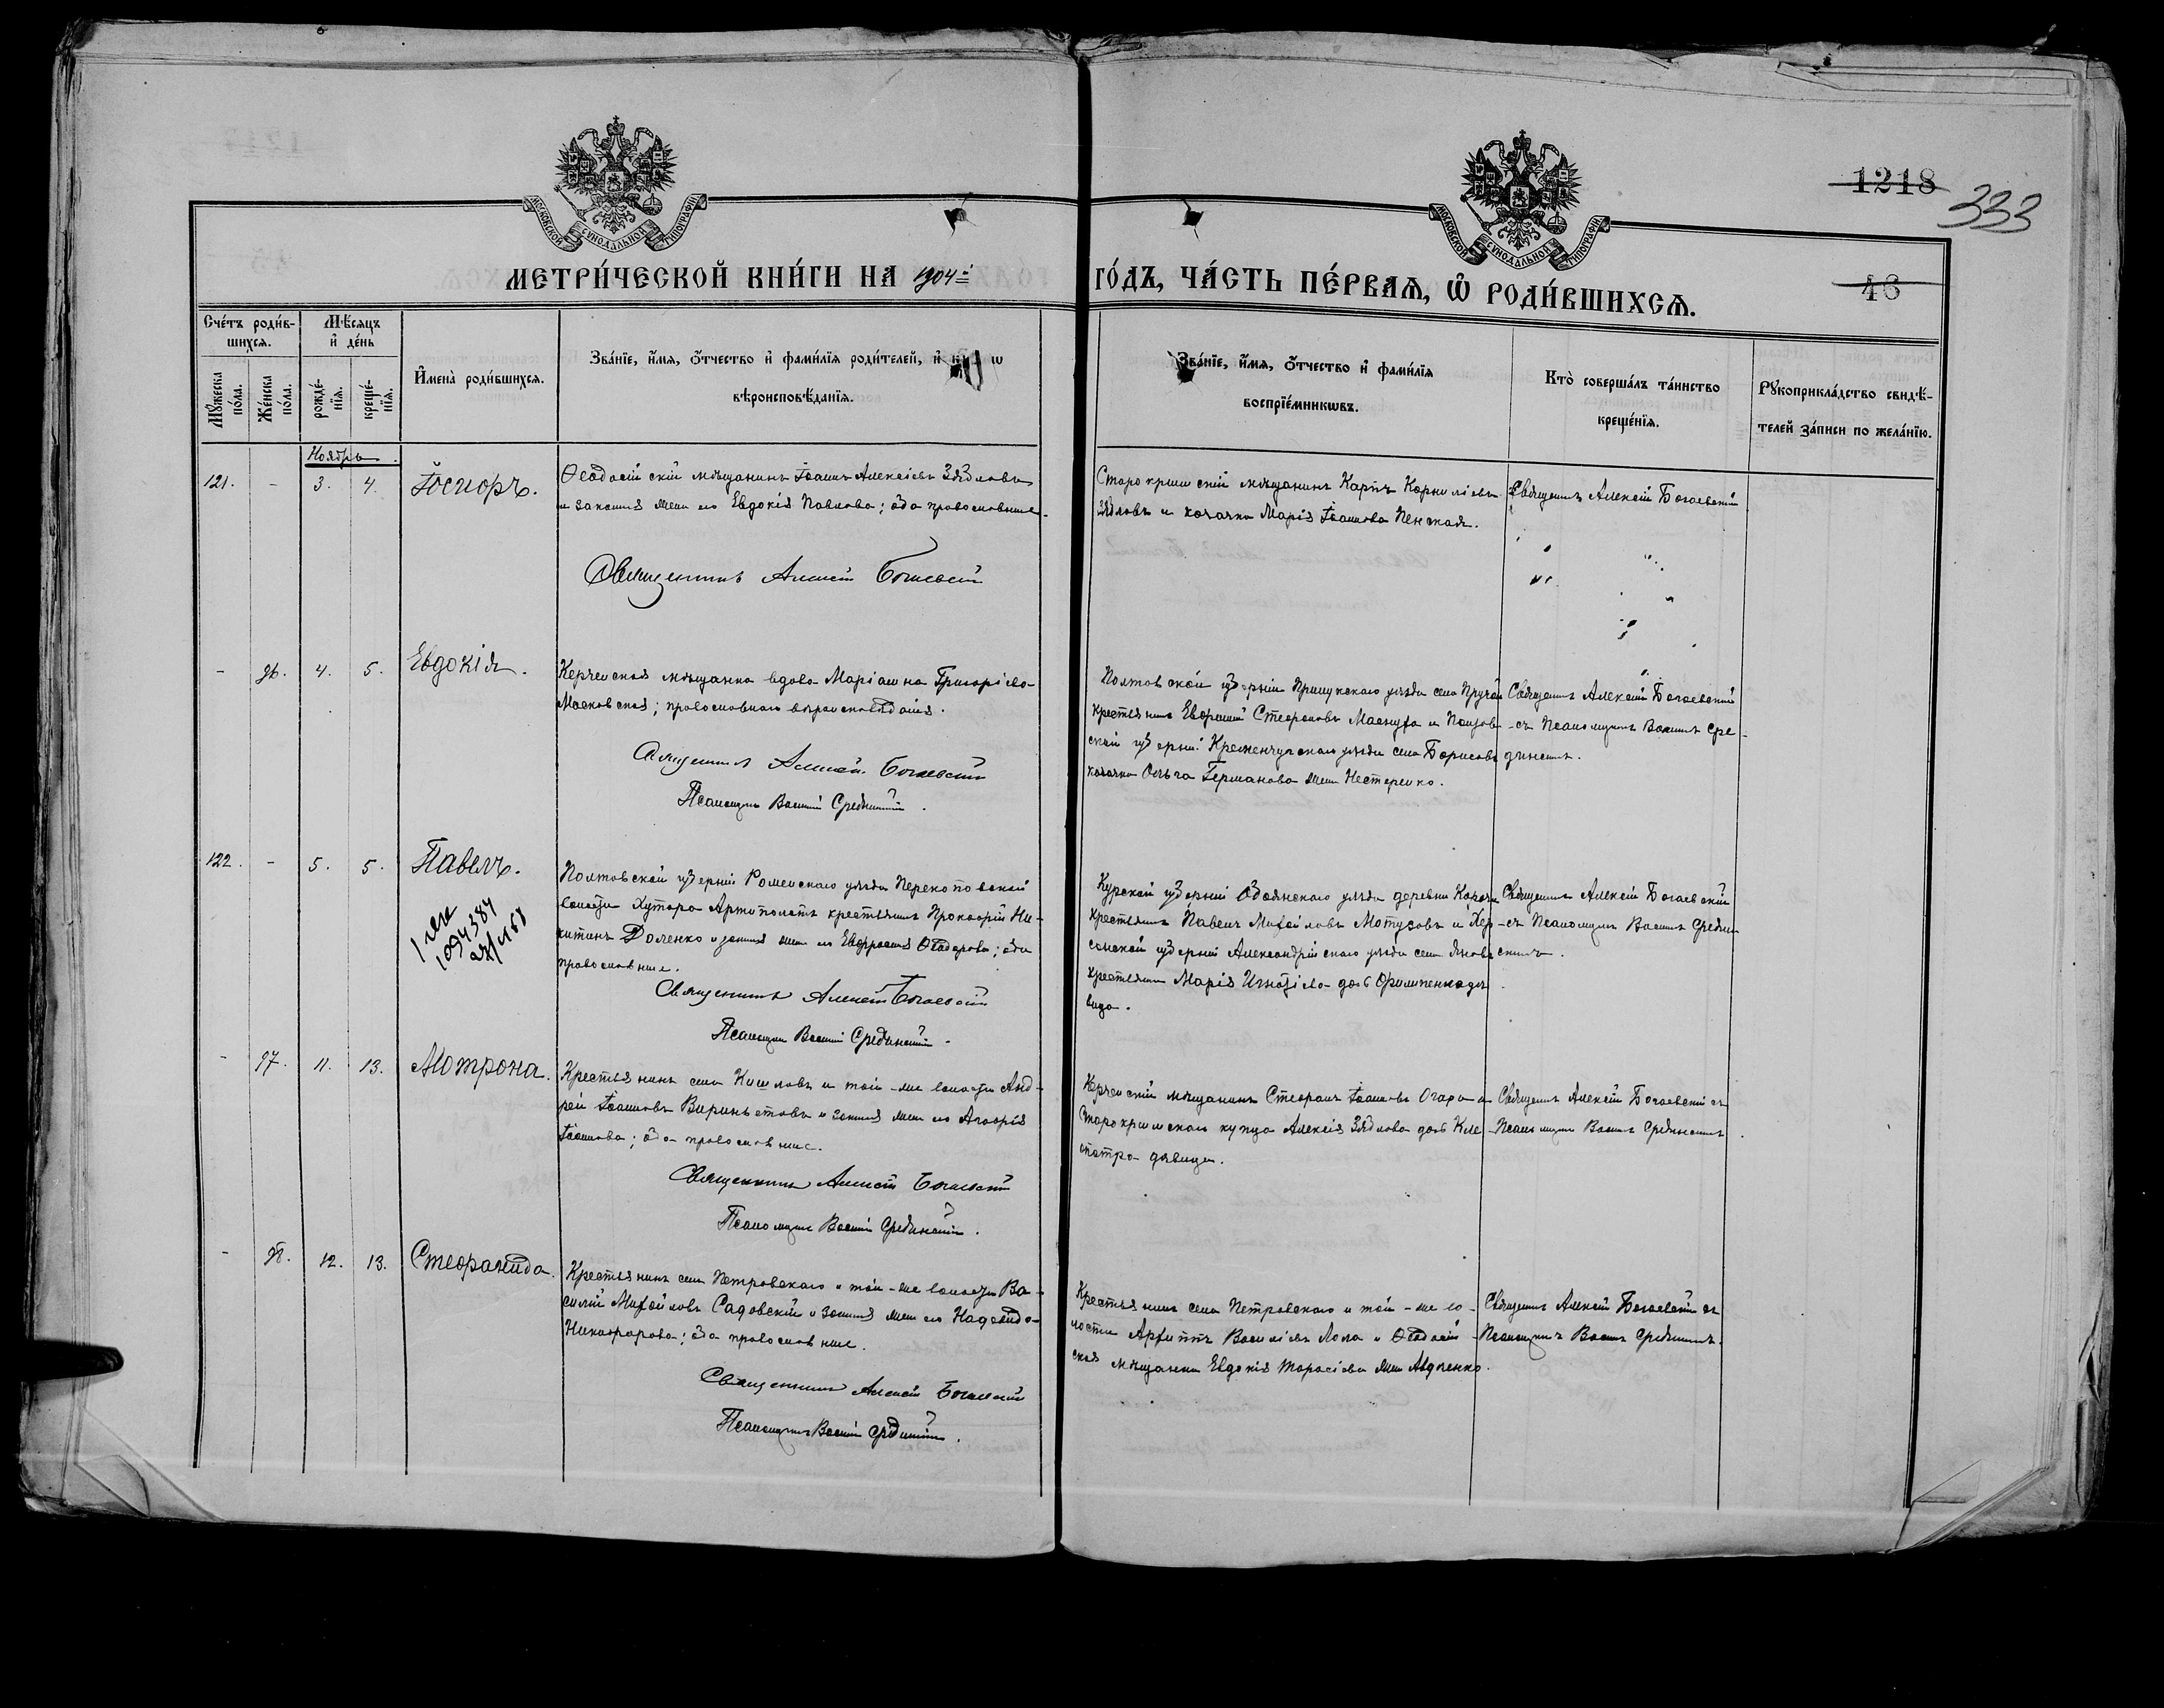 1218
333
МОСКОВСКОЙ СѴНОДАЛЬНОЙ ТИПОГРАФІИ
МОСКОВСКОЙ СѴНОДАЛЬНОЙ ТИПОГРАФІИ
МЕТРИ́ЧЕСКОЙ КНИ́ГИ НА 1904 ГО́ДЪ, ЧА́СТЬ ПЕ́РВАѦ, Ѽ РОДИ́ВШИХСѦ.
46
Сче́тъ роди́в-
шихсѧ.
Мꙋ́жеска по́ла.
Же́нска по́ла.
Мѣ́сѧцъ
и҆ де́нь
рожде́-
нїѧ.
креще́-
нїѧ.
И҆мена̀ роди́вшихсѧ.
Зва́нїе, и҆́мѧ, ѻ҆́тчество и҆ фами́лїѧ роди́телей, и҆
вѣроисповѣ́данїѧ.
Зва́нїе, и҆́мѧ, ѻ҆́тчество и҆ фами́лїѧ
воспрїе́мникѡвъ.
Кто̀ соверша́лъ та́инство
креще́нїѧ.
Рꙋкоприкла́дство свидѣ́-
телей за́писи по жела́нїю.
Ноябрь
121. - 3. 4.
Ѳеодосійскій мѣщанинъ Іоаннъ Алексіевъ Зябловъ
и законная жена его Евдокія Павлова; оба православные.
Старокрымскій мѣщанинъ Карпъ Корниліевъ
Зябловъ и казачка Марія Іоаннова Пенская.
Священникъ Алексій Богаевскій
Священникъ Алексій Богаевскій
- 96. 4. 5. Евдокія.
Керченская мѣщанка вдова Маріанна Григоріева
Московская; православнаго вѣроисповѣданія.
Священникъ Алексій Богаевскій
Псаломщикъ Василій Срединскій.
Полтавской губерніи Прилукскаго уѣзда села
крестьянинъ Евфимій Стефановъ и Полтав-
ской губерніи Кременчугскаго уѣзда села Борисовъ
казачка Ольга Германова жена Нестеренко.
Священникъ Алексій Богаевскій
съ Псаломщикомъ Василіемъ Сре-
динскимъ.
122. - 5. 5. Павелъ.
1094384
Полтавской губерніи Роменскаго уѣзда Перекоповской
волости Хутора Артополотъ крестьянинъ Прокофій Ни-
китинъ Доленко и законная жена его Евфросинія Ѳеодорова; оба
православные.
Священникъ Алексій Богаевскій
Псаломщикъ Василій Срединскій.
Курской губерніи Обоянскаго уѣзда деревни
крестьянинъ Павелъ Михайловъ Матусовъ и Хер-
сонской губерніи Александрійскаго уѣзда села
крестьянка Марія Игнатіева дочь
вица.
Священникъ Алексій Богаевскій
съ Псаломщикомъ Василіемъ Средин-
скимъ.
- 97. 11. 13. Матрона.
Крестьянинъ села Кишловъ и той-же волости Анд-
рей Іоанновъ и законная жена его Агафія
Іоаннова; оба православные.
Священникъ Алексій Богаевскій
Псаломщикъ Василій Срединскій.
Керченскій мѣщанинъ Стефанъ Іоанновъ и
Старокрымскаго купца Алексія Зяблова дочь Клео-
патра дѣвица.
Священникъ Алексій Богаевскій съ
Псаломщикомъ Василіемъ Срединскимъ.
- 98. 12. 13. Стефанида.
Крестьянинъ села Петровскаго и той-же волости Ва-
силій Михайловъ Садовскій и законная жена его Надежда
Никифорова; оба православные.
Священникъ Алексій Богаевскій
Псаломщикъ Василій Срединскій.
Крестьянинъ села Петровскаго и той-же во-
лости Архиппъ Василіевъ Лола и Ѳеодосій-
ская мѣщанка Евдокія Тарасіева жена Авдѣенко.
Священникъ Алексій Богаевскій съ
Псаломщикомъ Василіемъ Срединскимъ.